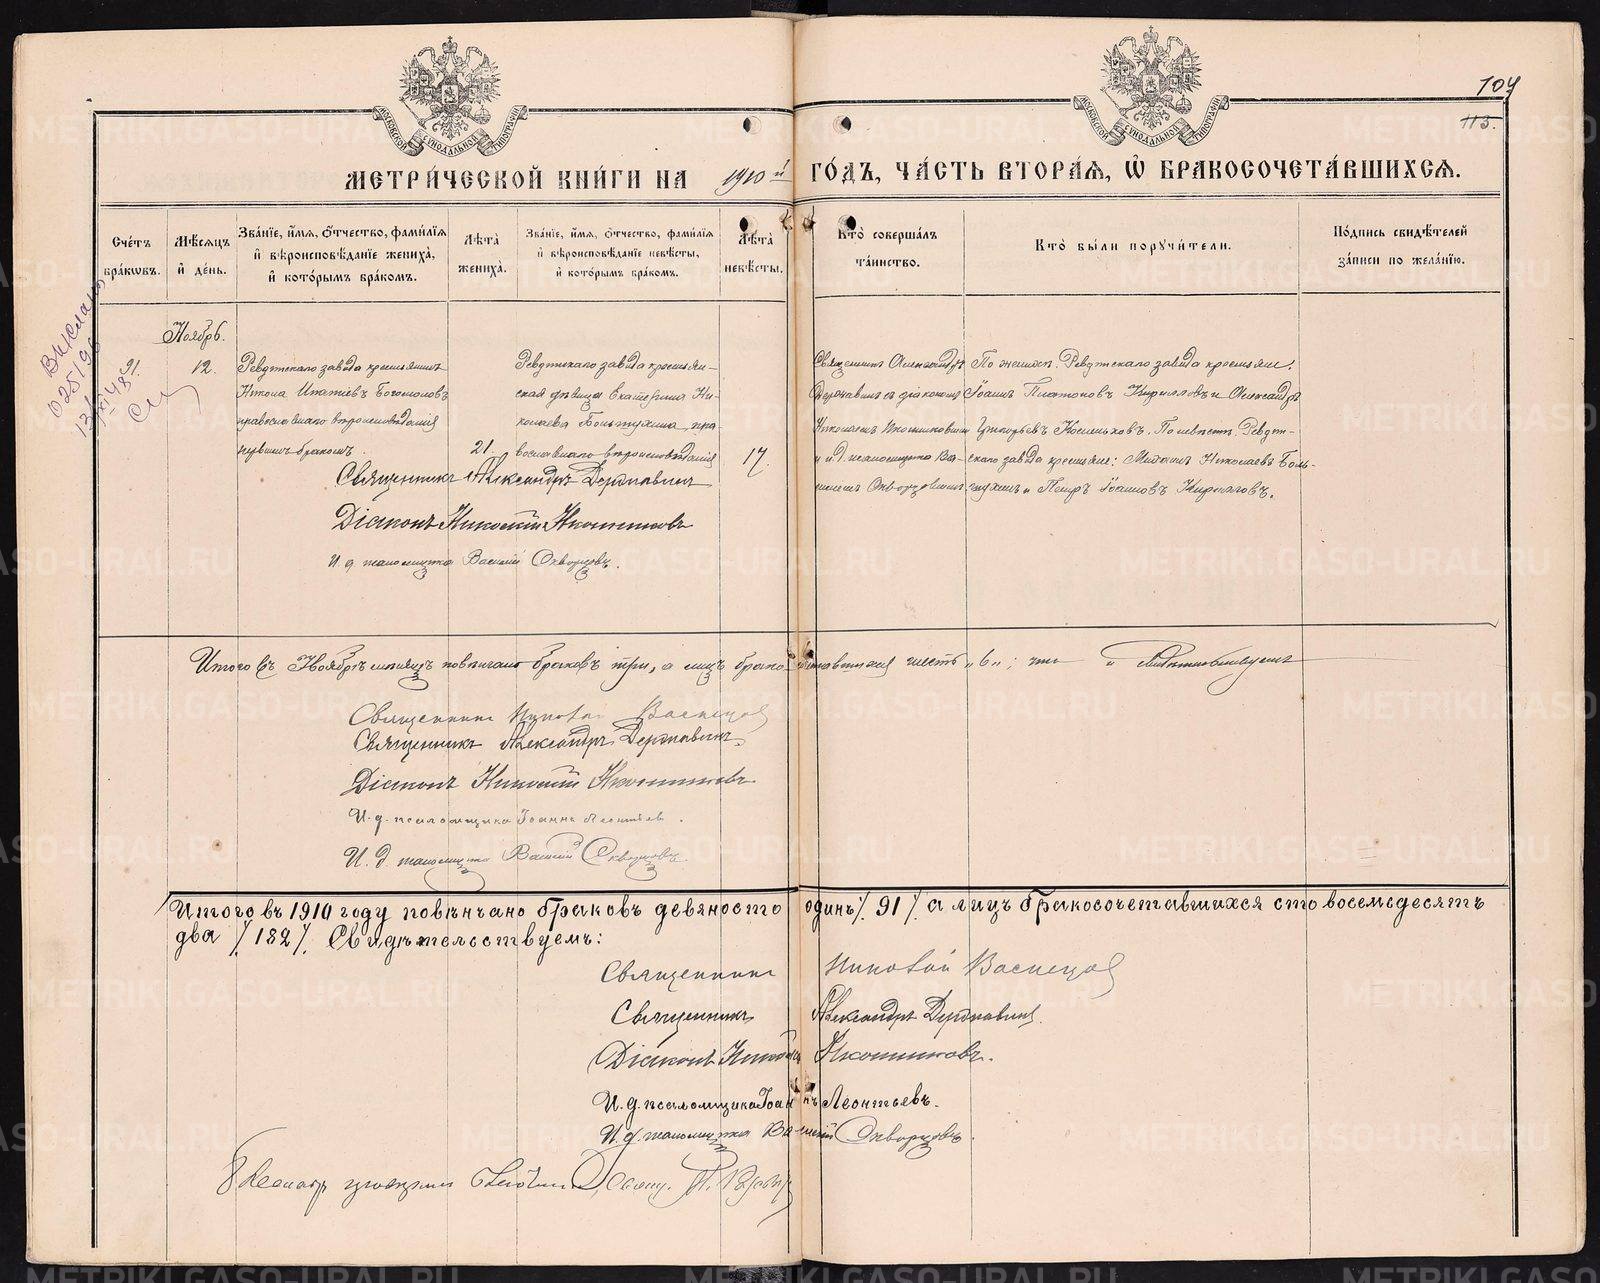 МОСКОВСКОЙ СѴНОДАЛЬНОЙ ТИПОГРАФІИ
МОСКОВСКОЙ СѴНОДАЛЬНОЙ ТИПОГРАФІИ
104
113.
МЕТРИ́ЧЕСКОЙ КНИ́ГИ НА 1910й ГО́ДЪ, ЧА́СТЬ ВТОРА́Я, Ѡ҆ БРАКОСОЧЕТА́ВШИХСЯ.
Сче́тъ бра́кѡвъ.
Мѣ́сяцъ и҆ де́нь.
Зва́нїе, и҆́мя, ѻ҆́тчество, фами́лїя и҆ вѣроисповѣ́данїе жениха̀, и҆ кото́рымъ бра́комъ.
Лѣ́та жениха̀.
Зва́нїе, и҆́мя, ѻ҆́тчество, фами́лїя и҆ вѣроисповѣ́данїе невѣ́сты, и҆ кото́рымъ бра́комъ.
Лѣ́та невѣ́сты.
Кто̀ соверша́лъ та́инство.
Кто̀ бы́ли поручи́тели.
По́дпись свидѣ́телей за́писи по жела́нїю.
Ноябрь.
91.
12.
Ревдинскаго завода крестьянинъ
Ипатіевъ Богомоловъ
православнаго вѣроисповѣданія
первымъ бракомъ.
21.
Ревдинскаго завода крестьян-
ская дѣвица Екатерина Ни-
колаева Болтухина, пра-
вославнаго вѣроисповѣданія
17.
Священникъ Александръ
Державинъ съ діакономъ
Николаемъ Иконниковымъ
и и.д. псаломщика Ва-
силіемъ Скворцовымъ.
По женихѣ: Ревдинскаго завода крестьяне:
Іоаннъ Платоновъ Кирилловъ и Александръ
Григорьевъ. По невѣстѣ: Ревдин-
скаго завода крестьяне: Николаевъ Бол-
тухинъ и Петръ Іоанновъ
Священникъ Александръ Державинъ
Діаконъ Николай Иконниковъ
И. д. псаломщика Василій Скворцовъ.
Итого въ Ноябрѣ мѣсяцѣ повѣнчано браковъ три, а лицъ бракосочетавшихся шесть „6“;
Священникъ Николай Васнецов
Священникъ Александръ Державинъ.
Діаконъ Николай Иконниковъ
И. д. псаломщика Іоаннъ Леонтьев.
И. д. псаломщика Василий Скворцовъ.
Итого въ 1910 году повѣнчано браковъ девяносто одинъ /91/ а лицъ бракосочетавшихся сто восемьдесятъ
два /182/. Свидѣтельствуемъ:
Священникъ Николай Васнецов
Священникъ Александръ Державинъ.
Діаконъ Николай Иконниковъ.
И. д. псаломщика Іоаннъ Леонтьевъ.
И. д. псаломщика Василій Скворцовъ.
METRIKI.GASO-URAL.RU